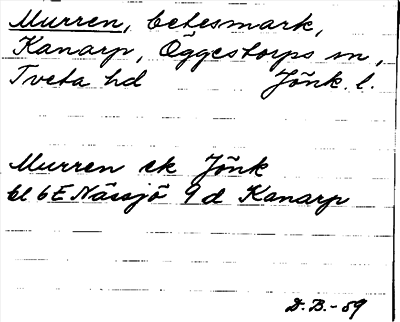 Murren, betesmark,
Kanarp, Öggestorps sn,
Tveta hd Jönk. l.
Murren ek Jönk
bl 6E Nässjö 9d Kanarp
D. B. - 59